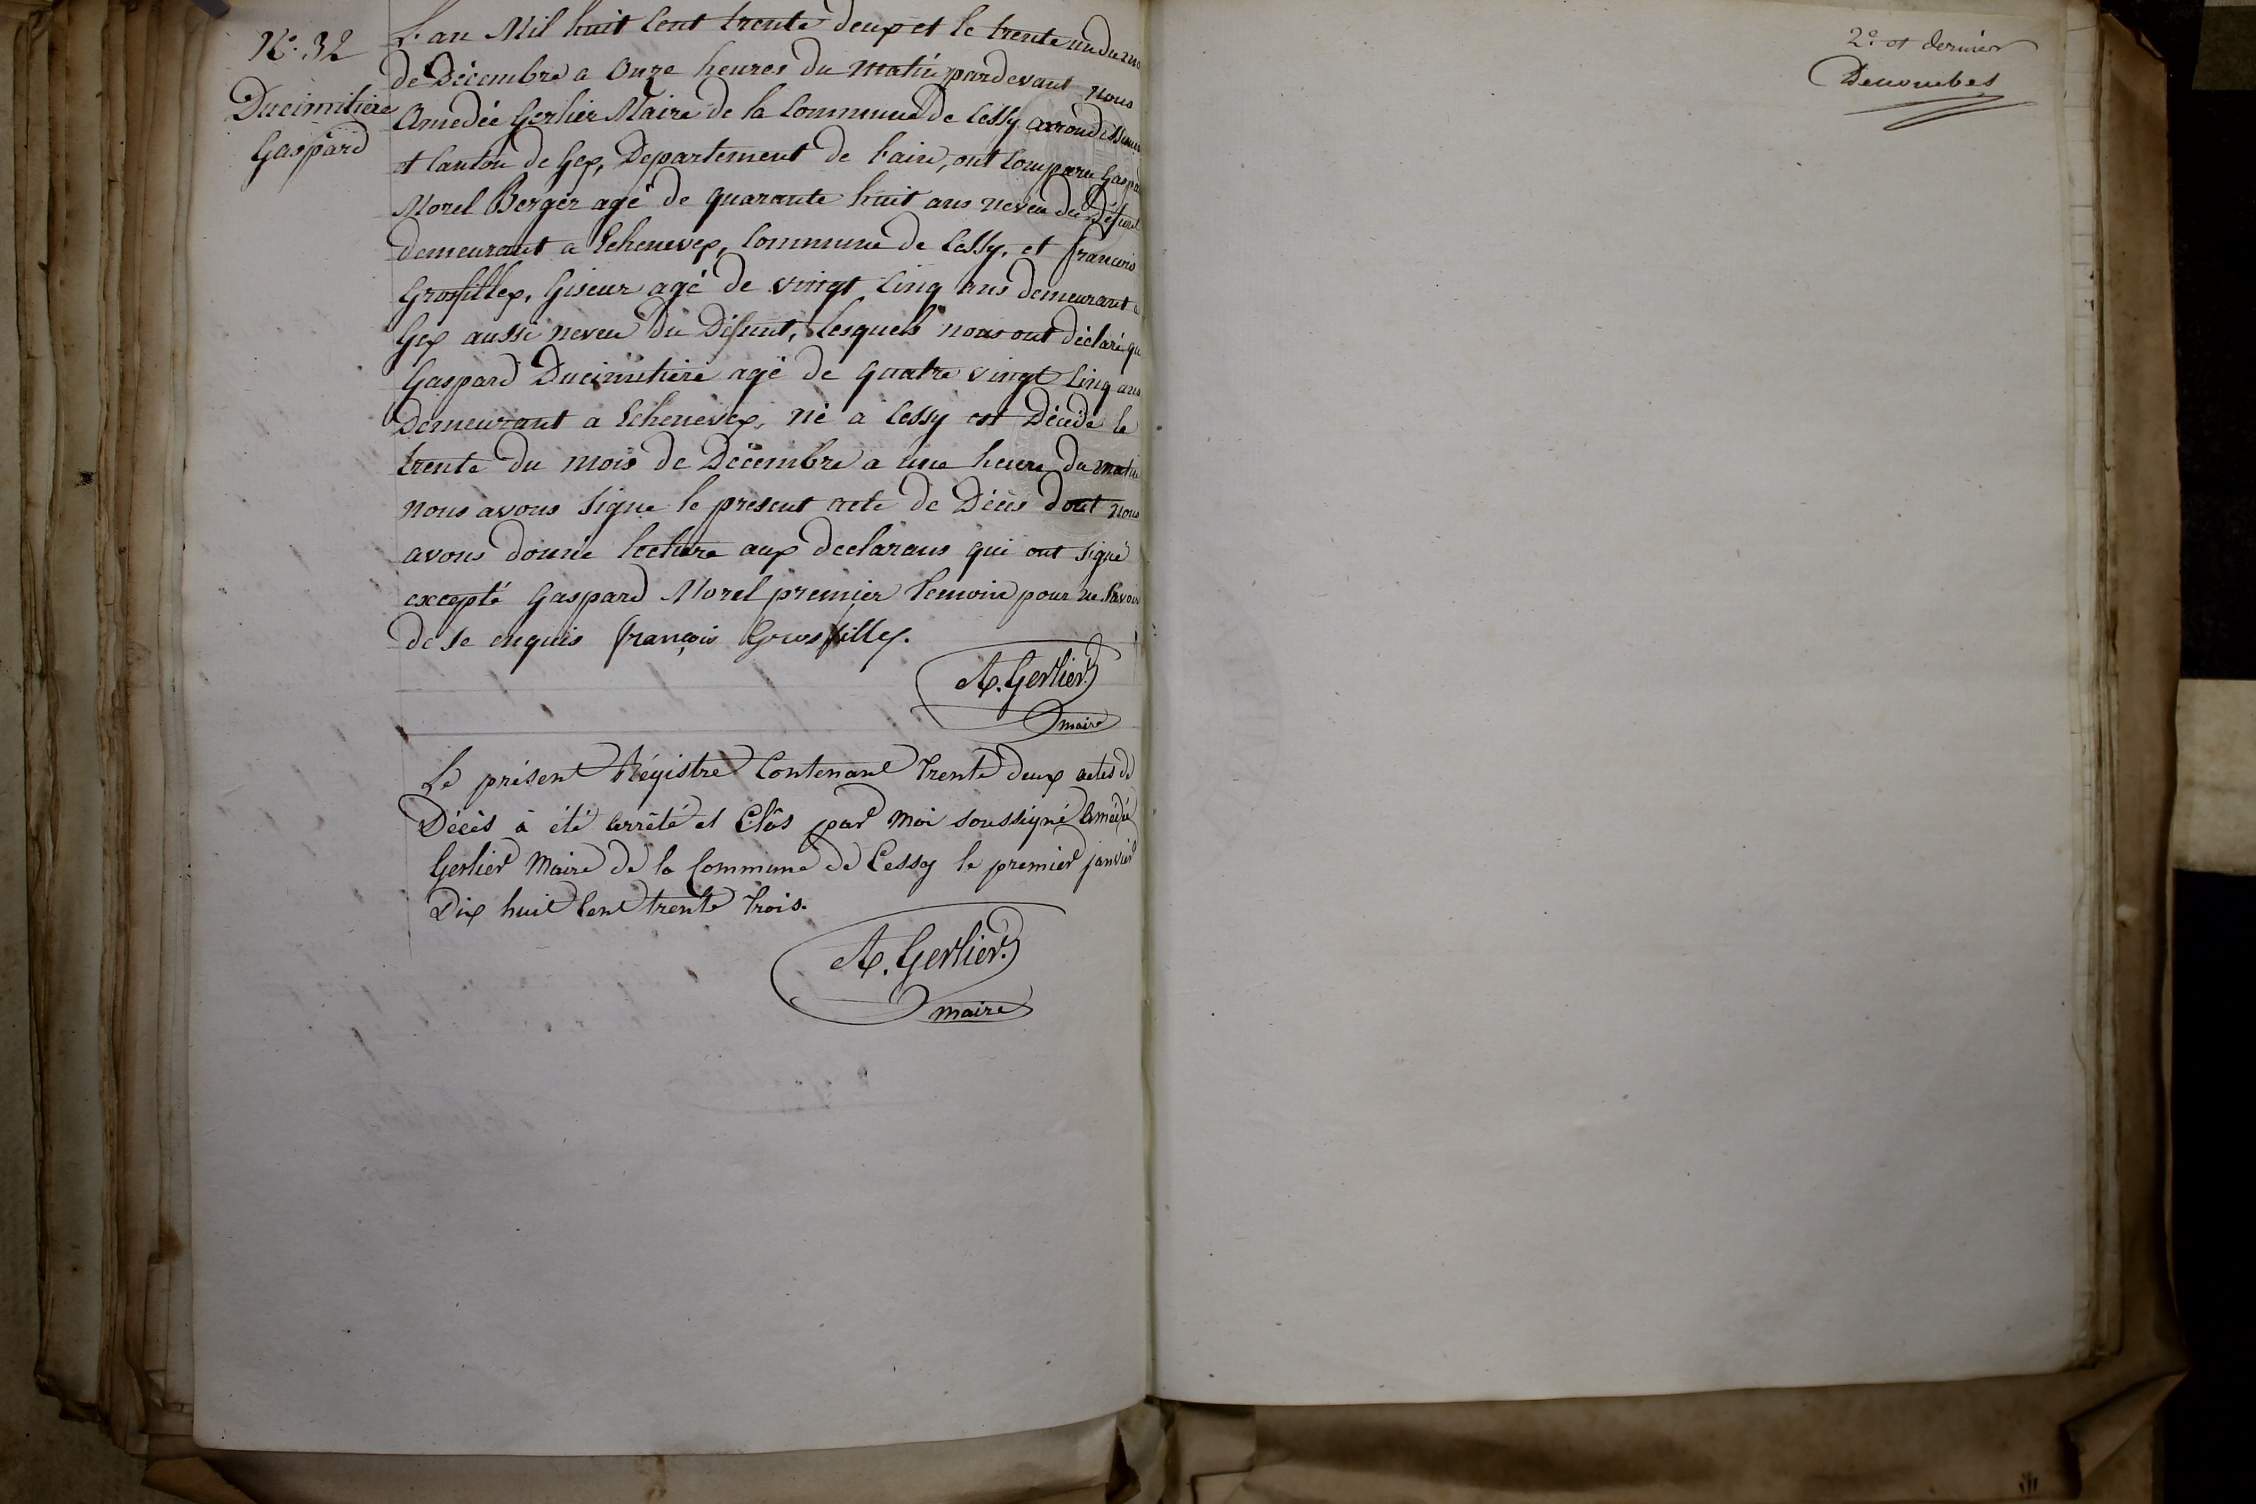 N.º 32
Ducimitière
Gaspard
L'an Mil huit Cent trente deux et le trente un du mois
de Décembre a Onze heures du matin pardevant nous
Amedée Gerlier Maire de la Commune de Cessy arrondissement
et Canton de Gex, Departement de l'ain, ont Comparu Gaspard
Morel Berger agé de quarante huit ans neveu du Défunt
demeurant a Echenevex, Commune de Cessy, et françois
Grosfillex, Giseur agé de vingt Cinq ans demeurant a
Gex aussi neveu du Défunt, lesquels nous ont déclaré que
Gaspard Ducimitière agé de quatre vingt Cinq ans
Demeurant a Echenevex, né a Cessy est Décédé le
trente du mois de Décembre a une heure du matin
nous avons signe le present acte de Décès dont nous
avons donné lecture aux declarans qui ont signé
excepté Gaspard Morel premier temoin pour ne savoir
de se enquis françois Grosfillex.
A. Gerlier
maire
Le présent Régistre Contenant trente deux actes de
Décès à été arrêté et Clôs par moi soussigné Amédée
Gerlier Maire de la Commune de Cessy le premier janvier
Dix huit Cent trente trois.
A. Gerlier
maire
2.e et dernier